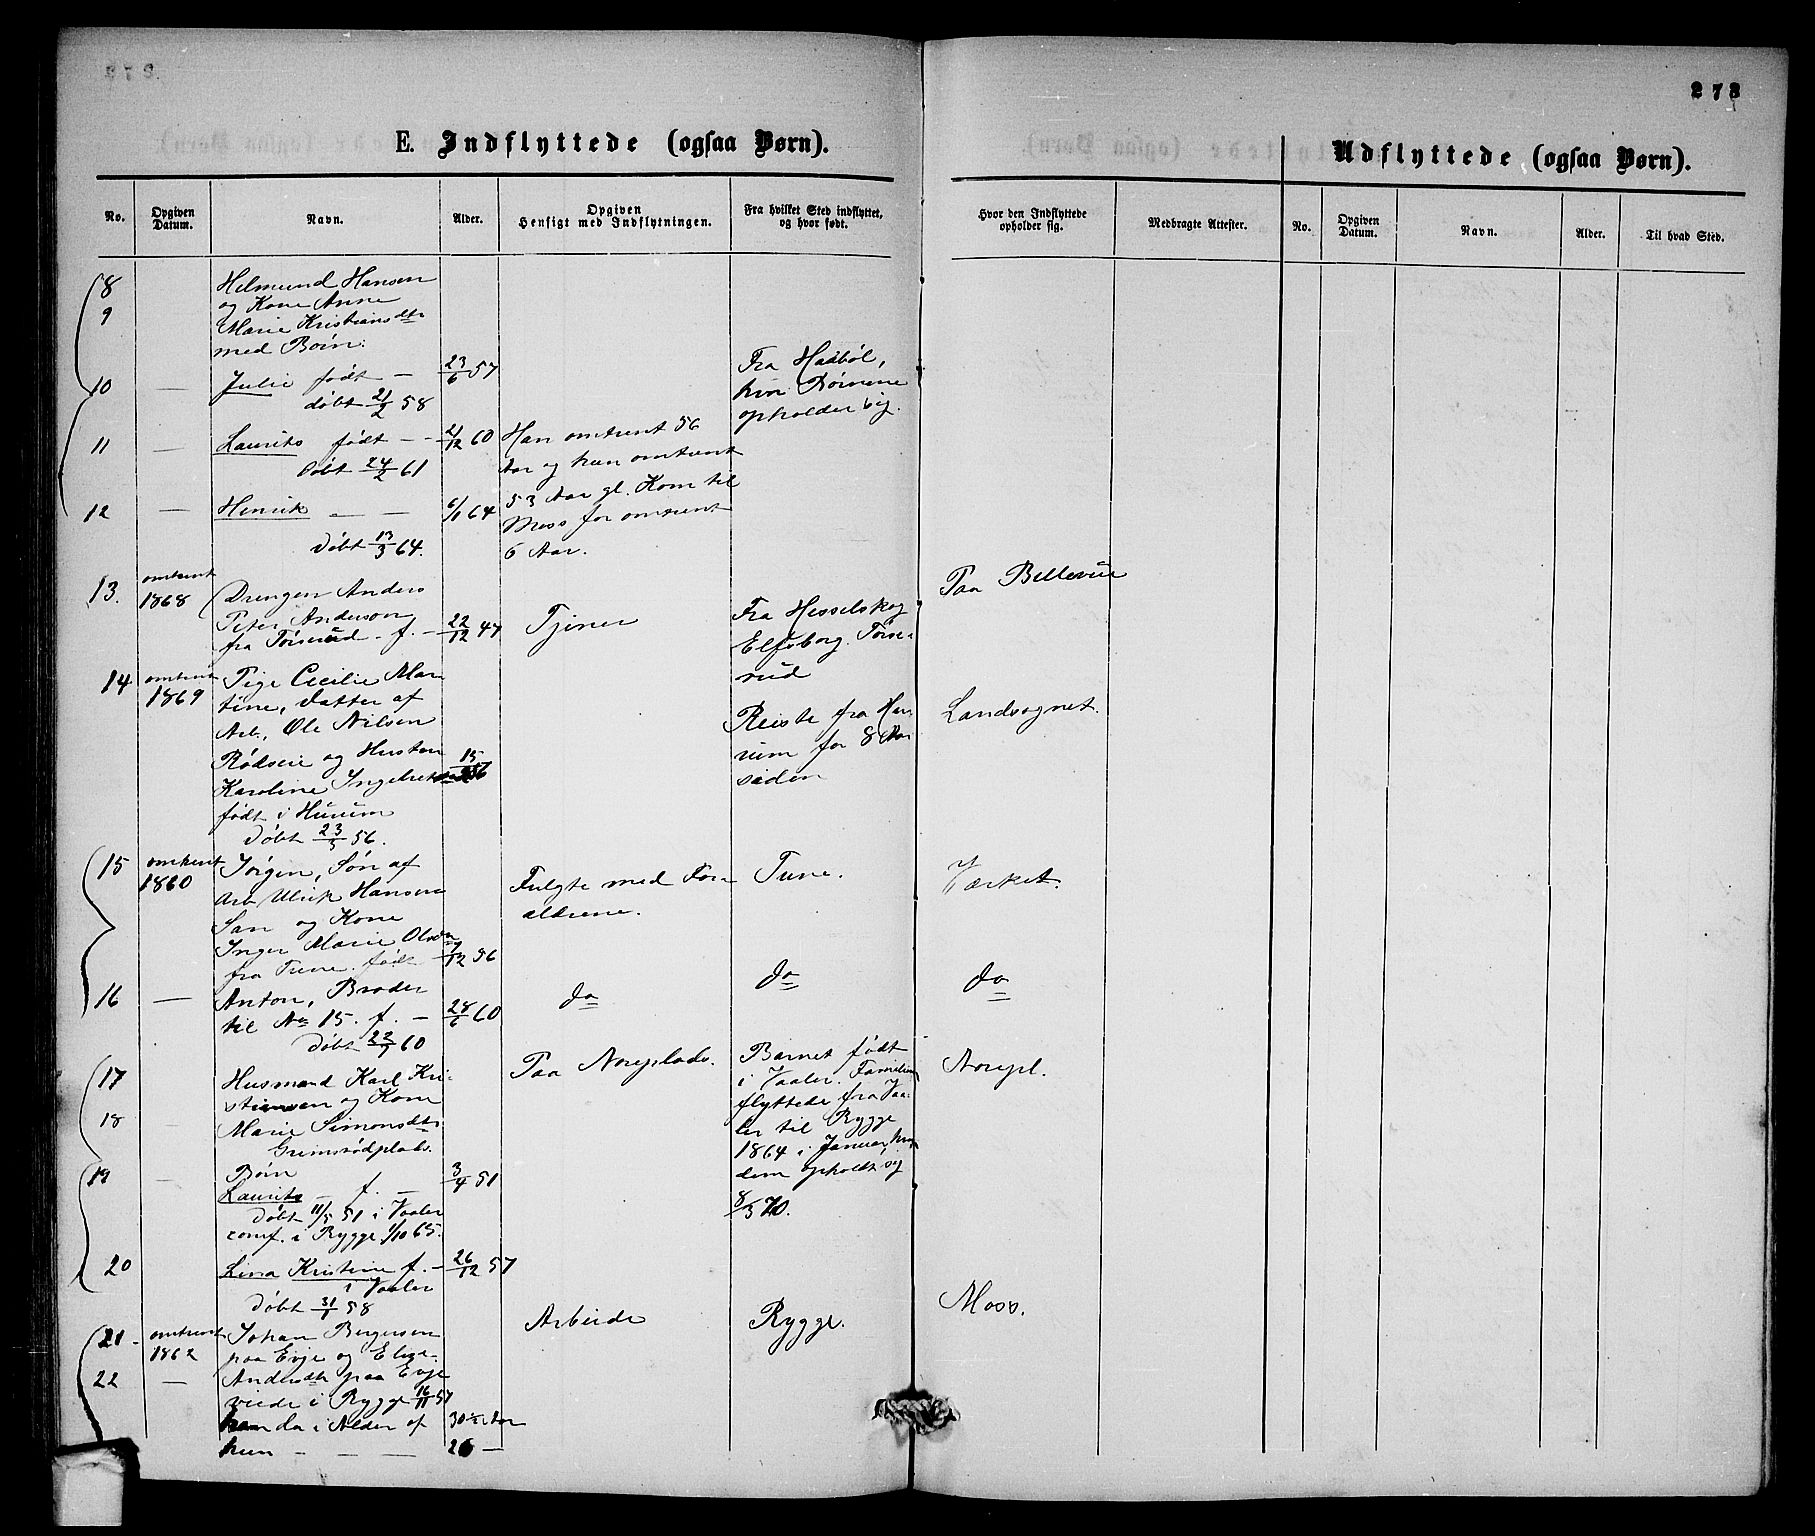 273
E. Indflyttede (ogsaa Børn).
Udflyttede (ogsaa Børn).
No.
Opgiven Datum.
Navn.
Alder.
Opgiven Hensigt med Indflytningen.
Fra hvilket Sted indflyttet, og hvor født.
Hvor den Indflyttede opholder sig.
Medbragte Attester.
No.
Opgiven Datum.
Navn.
Alder.
Til hvad Sted.
8 — Helmund Hansen
9 og Kone Anne
Marie Kristiansdtr
med Børn:
10 — Julie født — 23/6 57
døbt 21/2 58
Fra Hadbøl,
hvor Børnene
opholder sig.
11 — Laurits født — 21/12 60
Døbt 24/2 61
12 — Henrik — — 6/1 64
Døbt 13/3 64.
Han omtrent 56
Aar og hun omtrent
53 Aar gl. Kom til
Moss for omtrent
6 Aar.
13. omtrent 1868 Drengen Anders
Peter Anderson
fra Törsrud f. — 22/12 47
Tjener
Fra Hesselskog
Elfsborg. Törs-
rud
Paa Bellevue
14 omtrent 1869 Pige Cecilie Mar-
tine, Datter af
Arb. Ole Nilsen
Rødseie og Hustru
Karoline Ingebret
født i Hurum 15/2 56
Døbt 23/3 56.
Reiste fra Hu-
rum for 8 Aar
siden
Landsognet.
15 omtrent 1860 Jørgen, Søn af
Arb Ulrik Hansen
San og Kone
Inger Marie Olsdtr
fra Tune. født 7/12 56
Fulgte med For-
ældrene.
Tune.
Værket.
16 — Anton, Broder
til No 15. f. — 28/6 60
Døbt 22/7 60
do
do
do
17 Husmand Karl Kri-
stiansen og Kone
18 — Marie Simonsdtr
Grimsrødplads.
Paa Noreplads.
Barnet født
i Vaaler. Familien
flyttede fra Vaa-
ler til Rygge
1864 i Januar, hvor
dem opholdt sig
8/5 70.
Norepl.
19 — Børn
Laurits — f. — 3/4 51
Døbt 11/5 51 i Vaaler
conf. i Rygge 1/10 65.
20 Lina Kristine f. — 26/12 57
i Vaaler
Døbt 31/1 58
21 - omtrent 1862 Johan Bergersen
paa Evje og Elise
22 — Andersdtr paa Evje
viede i Rygge 16/11 57
han da i Alder af 30 1/2 Aar
hun — — — 26 —
Arbeide
Rygge.
Moss.